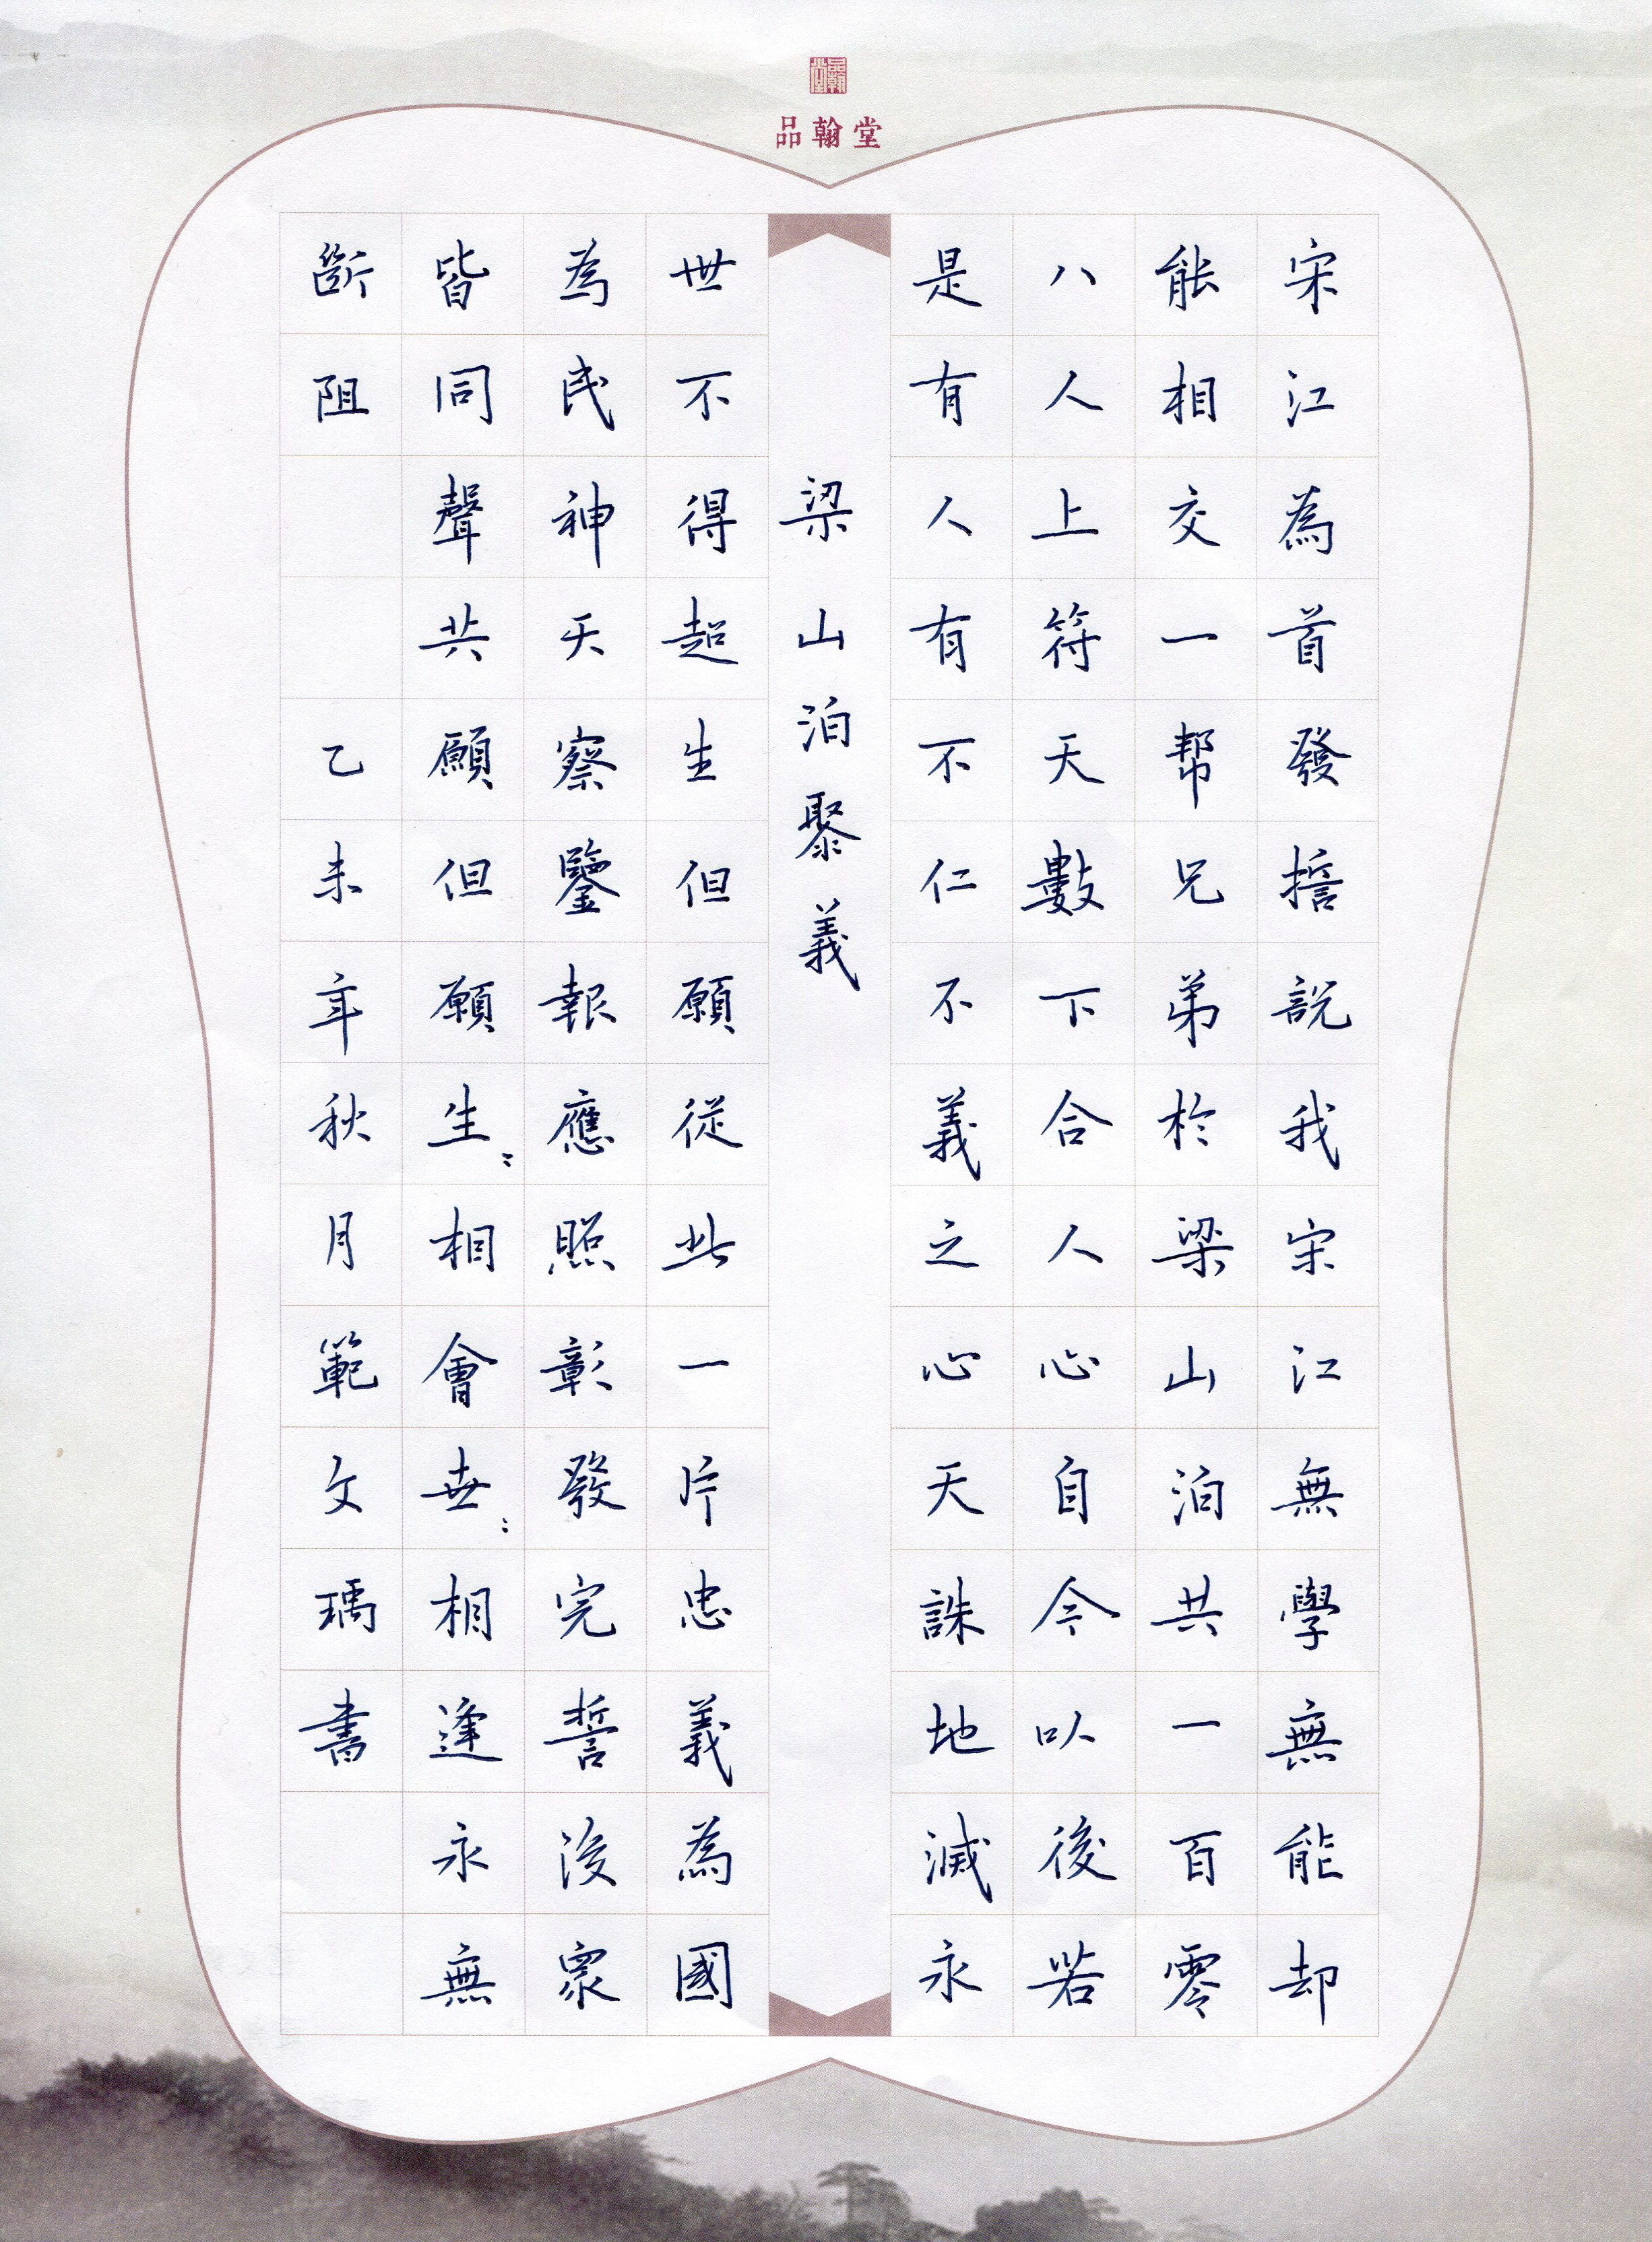 品翰堂
品翰堂
宋江為首發誓說我宋江無學無能却
能相交一帮兄弟於梁山泊共一百零
八人上符天數下合人心自今以後若
是有人有不仁不義之心天誅地滅永
梁山泊聚義
世不得超生但願從此一片忠義為國
為民神天察鑒報應照彰發完誓後衆
皆同聲共願但願生〻相會世〻相逢永無
斷阻 乙未年秋月範文瑀書